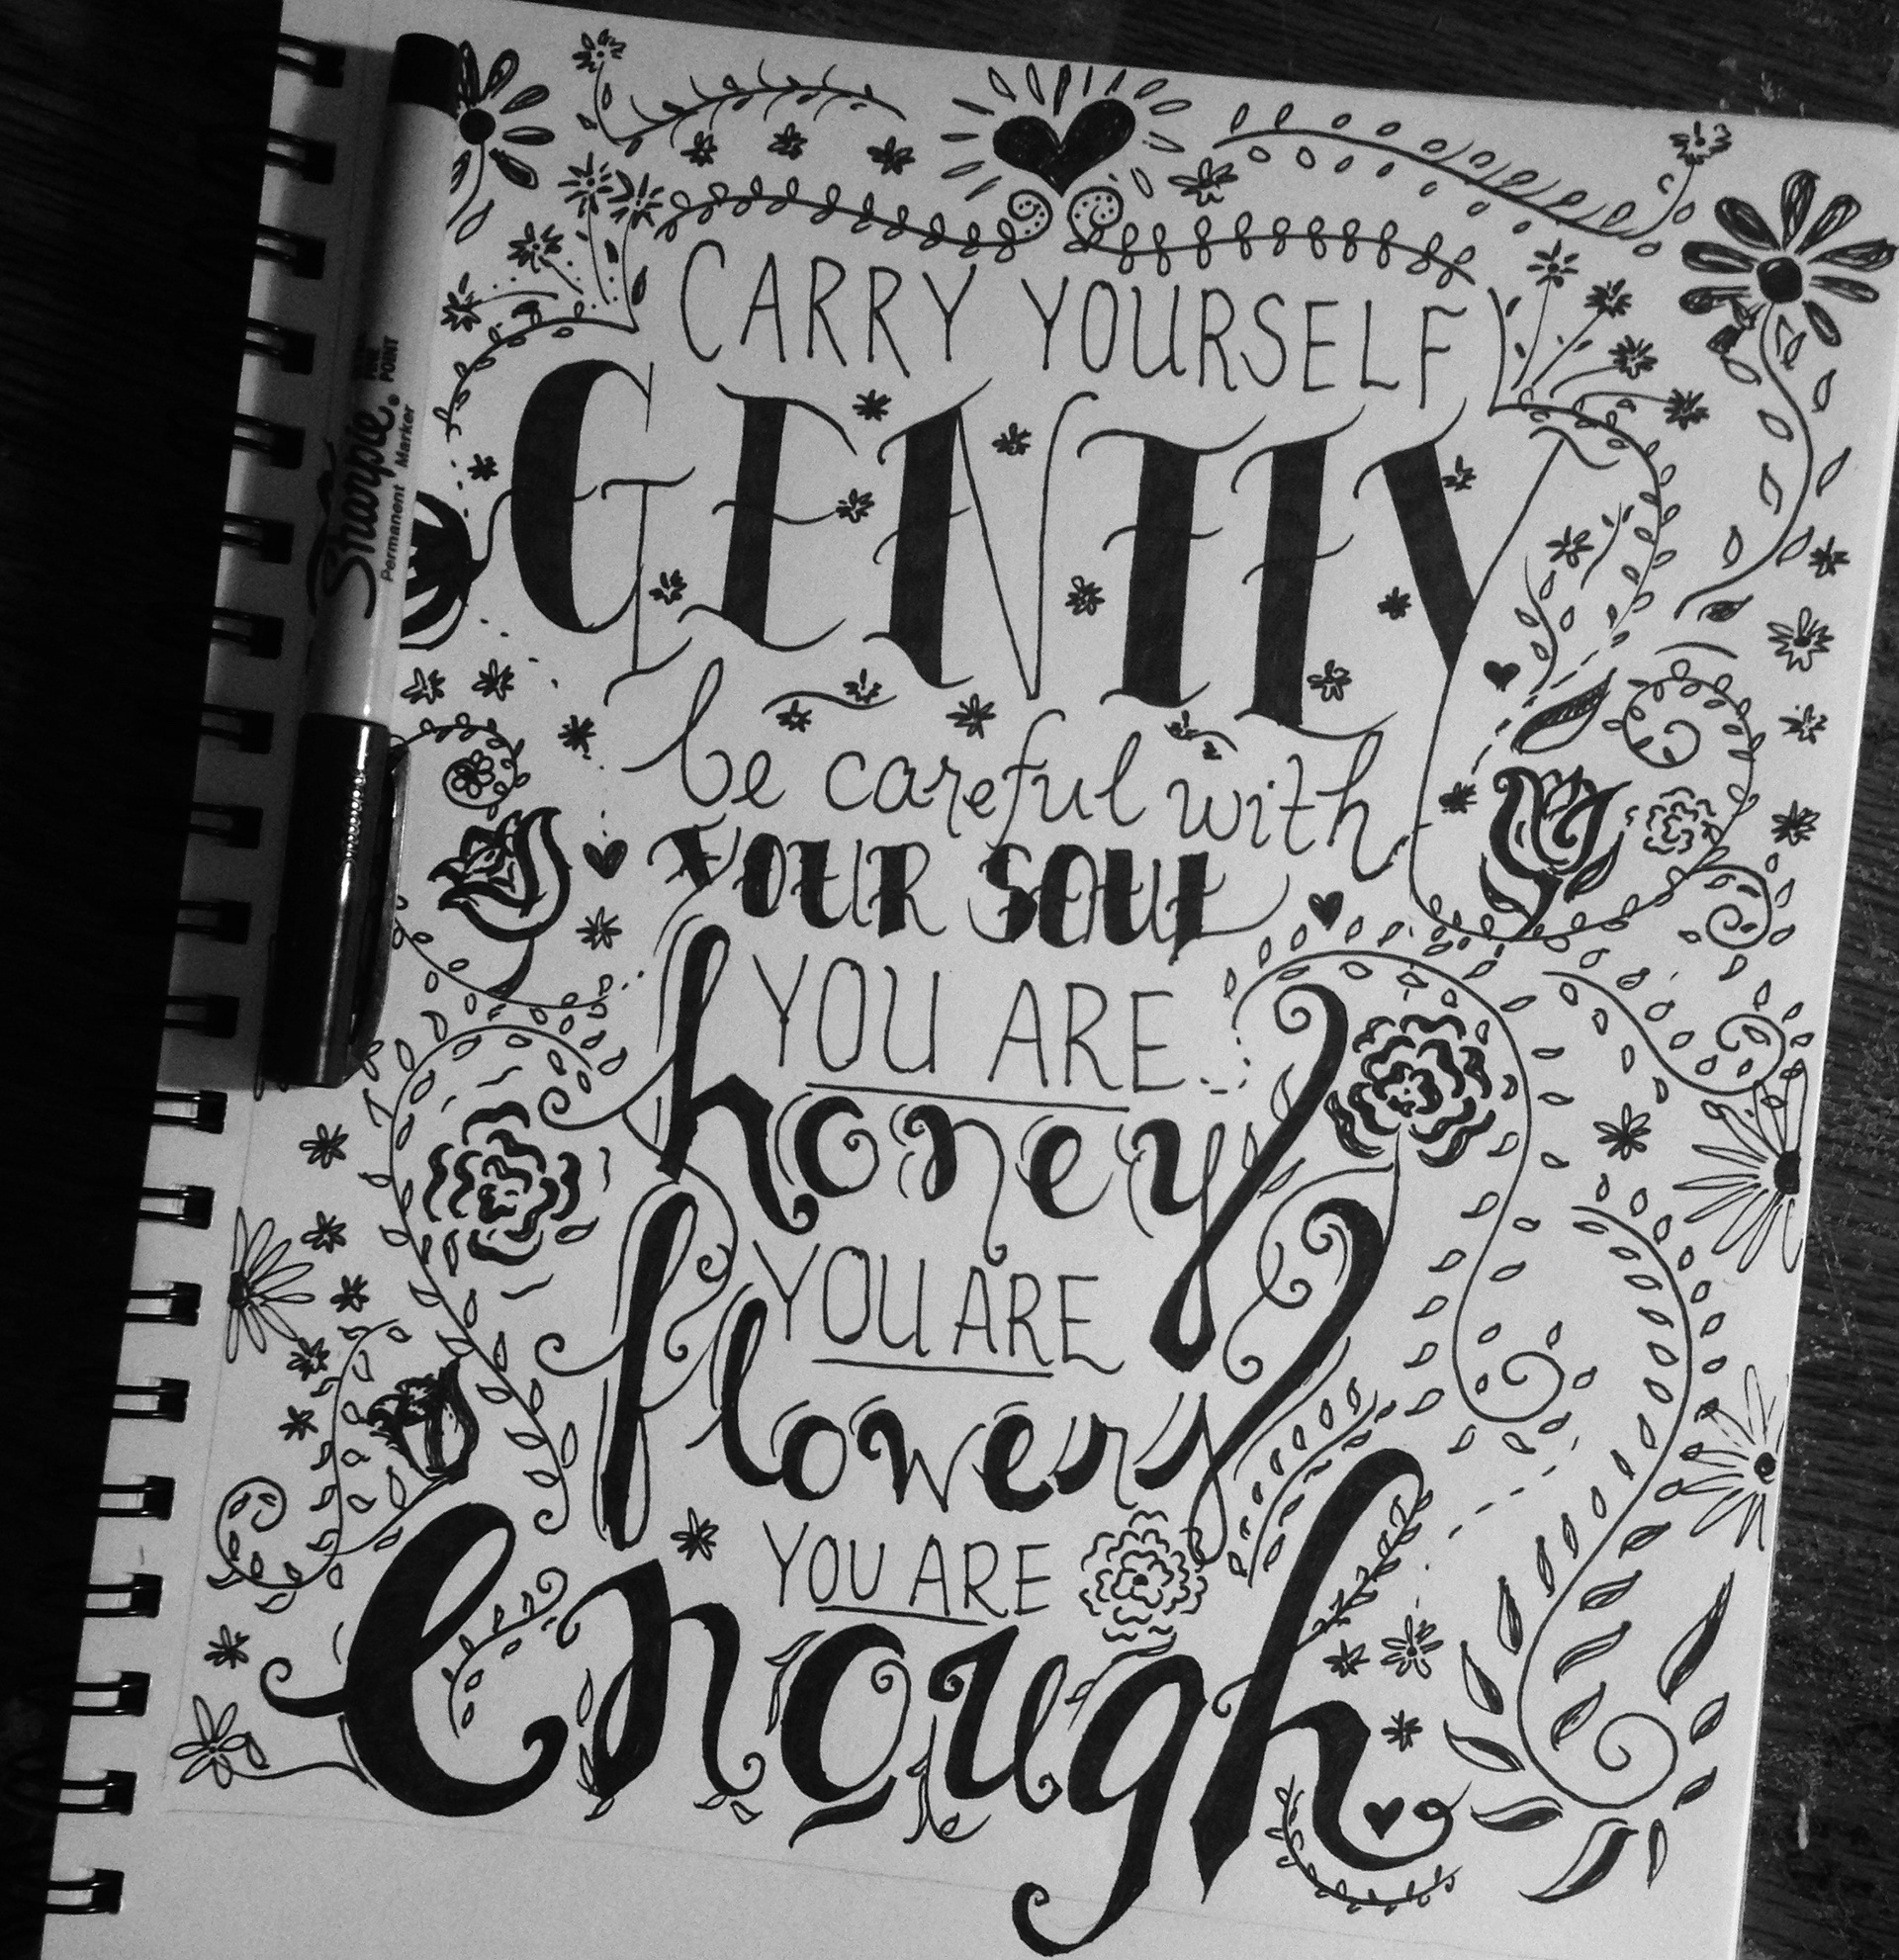 CARRY YOURSELF
GENTLY
be careful with
YOUR SOUL
YOU ARE
honey
YOU ARE
flowers
YOU ARE
enough
Sharpie® FINE POINT
Permanent Marker